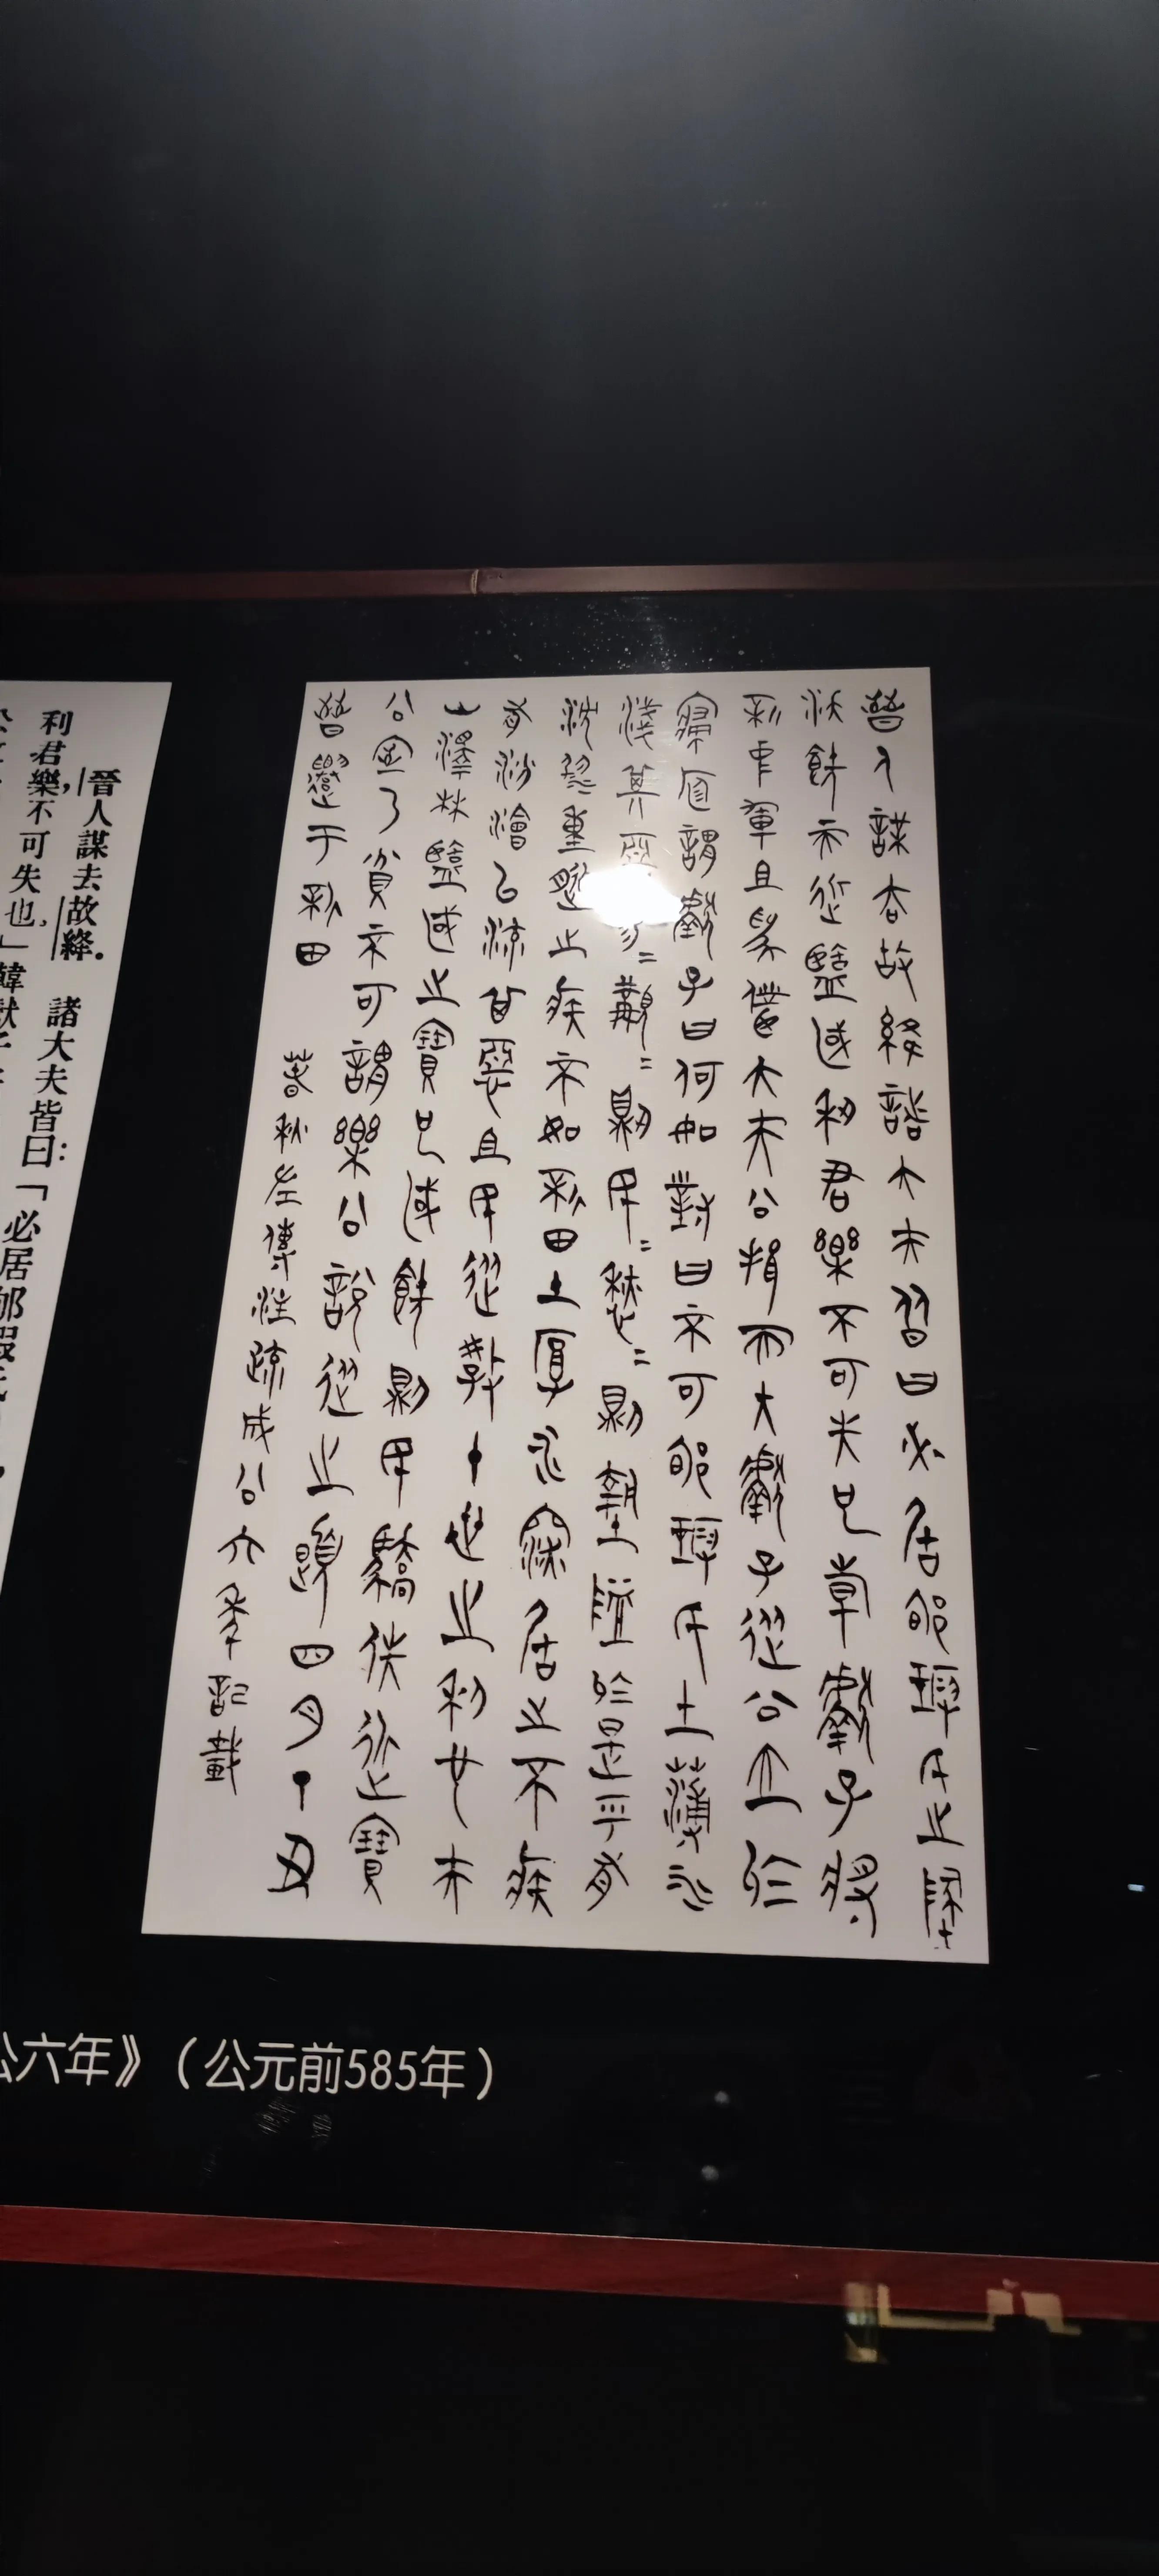 晉人謀去故絳諸大夫皆曰必居郇瑕氏之地
沃饒而近盬國利君樂不可失也韓獻子將
新中軍且為僕大夫公揖而入獻子從公立於
寢庭謂獻子曰何如對曰不可郇瑕氏土薄水
淺其惡易=覯=則民=愁=則墊隘於是乎有
沈溺重膇之疾不如新田土厚水深居之不疾
有汾澮以流其惡且民從教十世之利也夫
山澤林盬國之寶也國饒則民驕佚近寶
公室乃貧不可謂樂公說從之夏四月丁丑
晉遷于新田
春秋左傳注疏成公六年記載
晉人謀去故絳.諸大夫皆曰:「必居郇瑕氏
利君樂,不可失也。」韓獻子
公六年》(公元前585年)